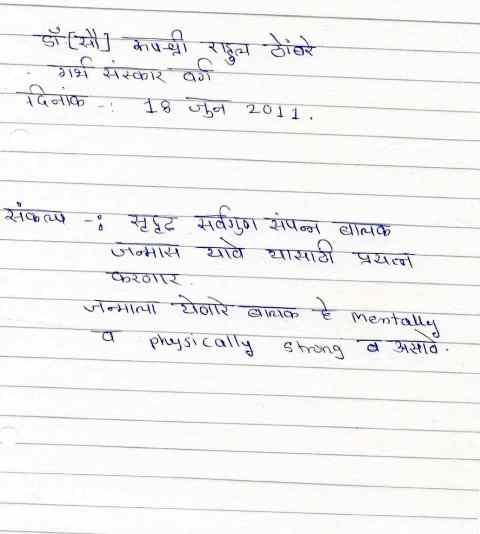 डॉ [सौ] रुपश्री राहुल ठोंबरे
गर्भ संस्कार वर्ग
दिनांक -: 18 जुन 2011.
संकल्प -: सुदृढ सर्वगुण संपन्न बालक
जन्मास यावे यासाठी प्रयत्न
करणार.
जन्माला येणारे बालक हे mentally
व physically strong व असावे.